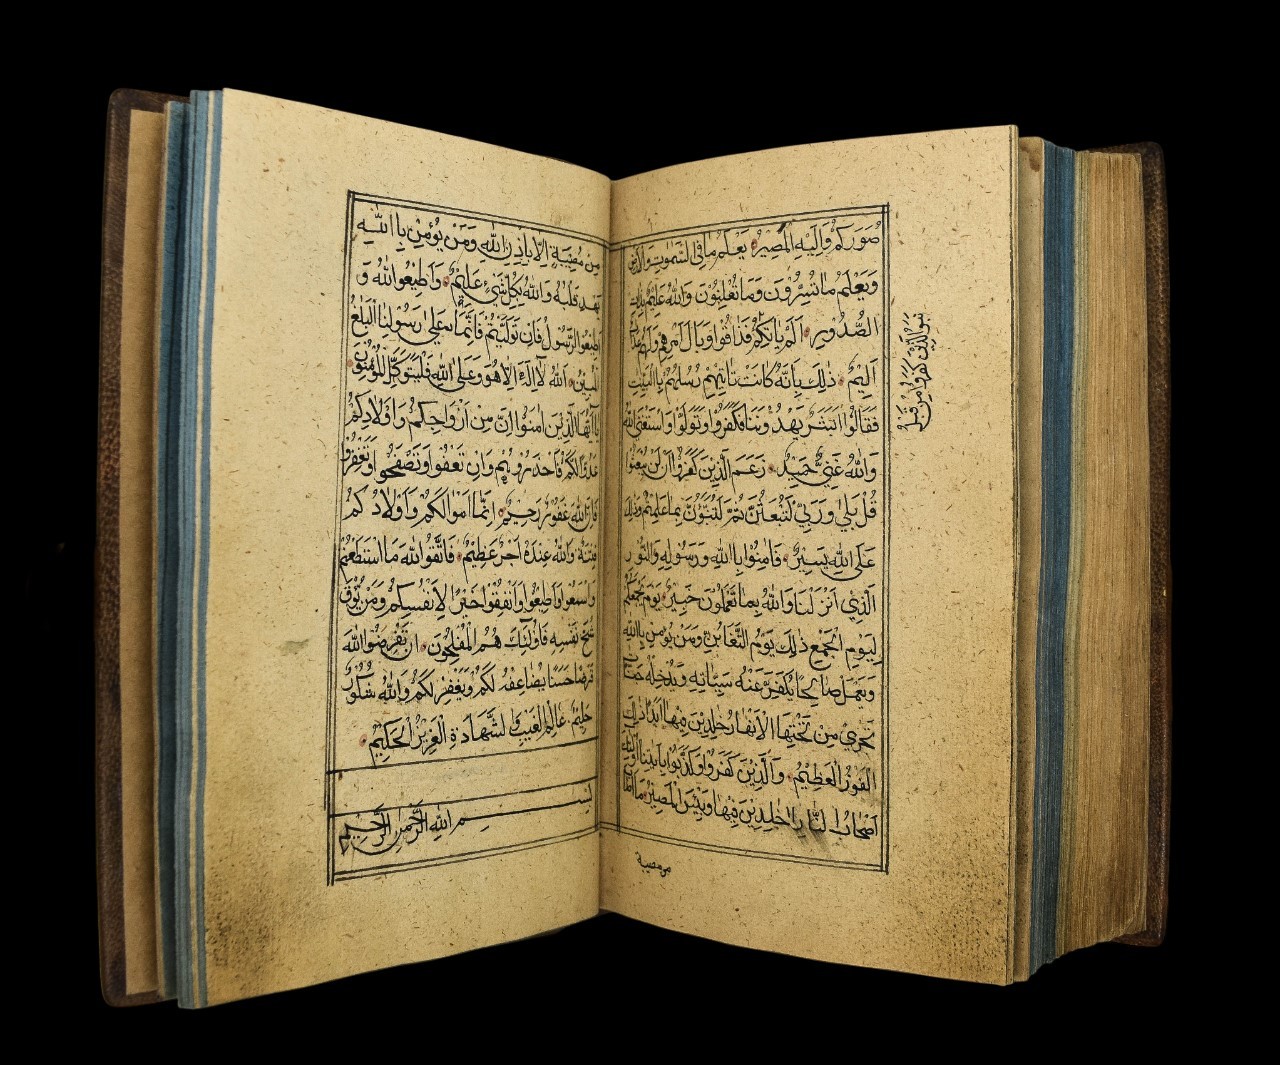 صُوَرَكُمْ وَاِلَيْهِ الْمَصِيْرُ يَعْلَمُ مَا فِى السَّمٰوٰتِ وَالْاَرْضِ
وَيَعْلَمُ مَا تُسِرُّوْنَ وَمَا تُعْلِنُوْنَ وَاللّٰهُ عَلِيْمٌ بِذَاتِ
الصُّدُوْرِ اَلَمْ يَاْتِكُمْ فَذَاقُوْا وَبَالَ اَمْرِهِمْ وَلَهُمْ عَذَابٌ
نَبَؤُا الَّذِيْنَ كَفَرُوْا مِنْ قَبْلُ
اَلِيْمٌ ذٰلِكَ بِاَنَّهُ كَانَتْ تَاْتِيْهِمْ رُسُلُهُمْ بِالْبَيِّنٰتِ
فَقَالُوْا اَبَشَرٌ يَهْدُوْنَنَا فَكَفَرُوْا وَتَوَلَّوْا وَاسْتَغْنَى اللّٰهُ
وَاللّٰهُ غَنِىٌّ حَمِيْدٌ زَعَمَ الَّذِيْنَ كَفَرُوْا اَنْ لَنْ يُبْعَثُوْا
قُلْ بَلٰى وَرَبِّىْ لَتُبْعَثُنَّ ثُمَّ لَتُنَبَّؤُنَّ بِمَا عَمِلْتُمْ وَذٰلِكَ
عَلَى اللّٰهِ يَسِيْرٌ فَاٰمِنُوْا بِاللّٰهِ وَرَسُوْلِهِ وَالنُّوْرِ
الَّذِىْ اَنْزَلْنَا وَاللّٰهُ بِمَا تَعْمَلُوْنَ خَبِيْرٌ يَوْمَ يَجْمَعُكُمْ
لِيَوْمِ الْجَمْعِ ذٰلِكَ يَوْمُ التَّغَابُنِ وَمَنْ يُؤْمِنْ بِاللّٰهِ
وَيَعْمَلْ صَالِحًا يُكَفِّرْ عَنْهُ سَيِّاٰتِهِ وَيُدْخِلْهُ جَنّٰتٍ
تَجْرِىْ مِنْ تَحْتِهَا الْاَنْهَارُ خٰلِدِيْنَ فِيْهَا اَبَدًا ذٰلِكَ
الْفَوْزُ الْعَظِيْمُ وَالَّذِيْنَ كَفَرُوْا وَكَذَّبُوْا بِاٰيٰتِنَا اُولٰئِكَ
اَصْحَابُ النَّارِ خٰلِدِيْنَ فِيْهَا وَبِئْسَ الْمَصِيْرُ مَا اَصَابَ
من مصيبة
مِنْ مُصِيْبَةٍ اِلَّا بِاِذْنِ اللّٰهِ وَمَنْ يُؤْمِنْ بِاللّٰهِ
يَهْدِ قَلْبَهُ وَاللّٰهُ بِكُلِّ شَىْءٍ عَلِيْمٌ وَاَطِيْعُوا اللّٰهَ وَ
اَطِيْعُوا الرَّسُوْلَ فَاِنْ تَوَلَّيْتُمْ فَاِنَّمَا عَلٰى رَسُوْلِنَا الْبَلٰغُ
الْمُبِيْنُ اَللّٰهُ لَا اِلٰهَ اِلَّا هُوَ وَعَلَى اللّٰهِ فَلْيَتَوَكَّلِ الْمُؤْمِنُوْنَ
يَا اَيُّهَا الَّذِيْنَ اٰمَنُوْا اِنَّ مِنْ اَزْوَاجِكُمْ وَاَوْلَادِكُمْ
عَدُوًّا لَكُمْ فَاحْذَرُوْهُمْ وَاِنْ تَعْفُوْا وَتَصْفَحُوْا وَتَغْفِرُوْا
فَاِنَّ اللّٰهَ غَفُوْرٌ رَحِيْمٌ اِنَّمَا اَمْوَالُكُمْ وَاَوْلَادُكُمْ
فِتْنَةٌ وَاللّٰهُ عِنْدَهُ اَجْرٌ عَظِيْمٌ فَاتَّقُوا اللّٰهَ مَا اسْتَطَعْتُمْ
وَاسْمَعُوْا وَاَطِيْعُوْا وَاَنْفِقُوْا خَيْرًا لِاَنْفُسِكُمْ وَمَنْ يُوْقَ
شُحَّ نَفْسِهِ فَاُولٰئِكَ هُمُ الْمُفْلِحُوْنَ اِنْ تُقْرِضُوا اللّٰهَ
قَرْضًا حَسَنًا يُضَاعِفْهُ لَكُمْ وَيَغْفِرْ لَكُمْ وَاللّٰهُ شَكُوْرٌ
حَلِيْمٌ عَالِمُ الْغَيْبِ وَالشَّهَادَةِ الْعَزِيْزُ الْحَكِيْمُ
بِسْمِ اللّٰهِ الرَّحْمٰنِ الرَّحِيْمِ